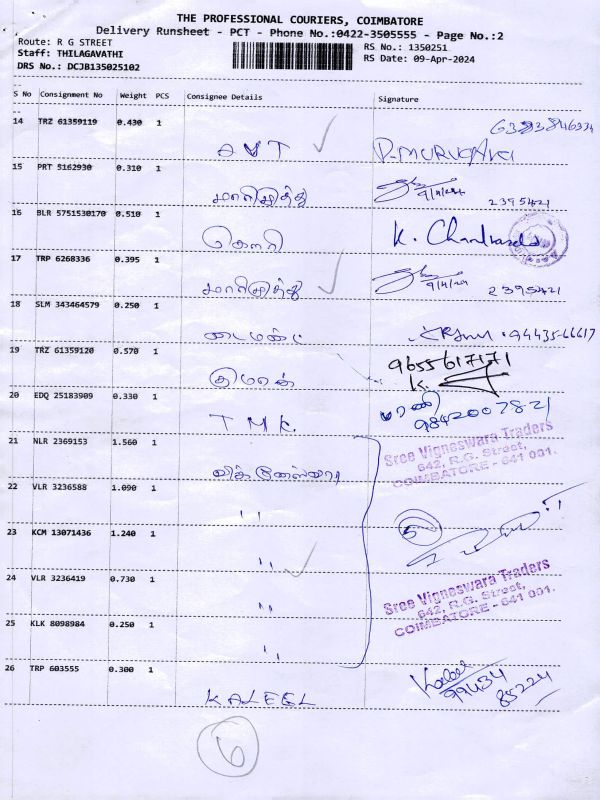 THE PROFESSIONAL COURIERS, COIMBATORE
Delivery Runsheet - PCT - Phone No.:0422-3505555 - Page No.:2
Route: R G STREET
RS No.: 1350251
Staff: THILAGAVATHI
RS Date: 09-Apr-2024
DRS No.: DCJB135025102
S No Consignment No Weight PCS Consignee Details Signature
14 TRZ 61359119 0.430 1
AVT P.MURUGAN
15 PRT 5162930 0.310 1
மாரிமுத்து 9/4/24 2395421
16 BLR 5751530170 0.510 1
கௌரி K.
17 TRP 6268336 0.395 1
மாரிமுத்து 9/4/24 2395421
18 SLM 343464579 0.250 1
டைமண்ட் 94435-66617
19 TRZ 61359120 0.570 1
9655617171
K.
20 EDQ 25183909 0.330 1
T M K. பரணி
9842007821
21 NLR 2369153 1.560 1
Sree Vigneswara Traders
642, R.G. Street,
COIMBATORE - 641 001.
22 VLR 3236588 1.090 1
" 5
23 KCM 13071436 1.240 1
"
24 VLR 3236419 0.730 1
"
Sree Vigneswara Traders
642, R.G. Street,
COIMBATORE - 641 001.
25 KLK 8098984 0.250 1
"
26 TRP 603555 0.300 1
KALEEL
99434
85224
6